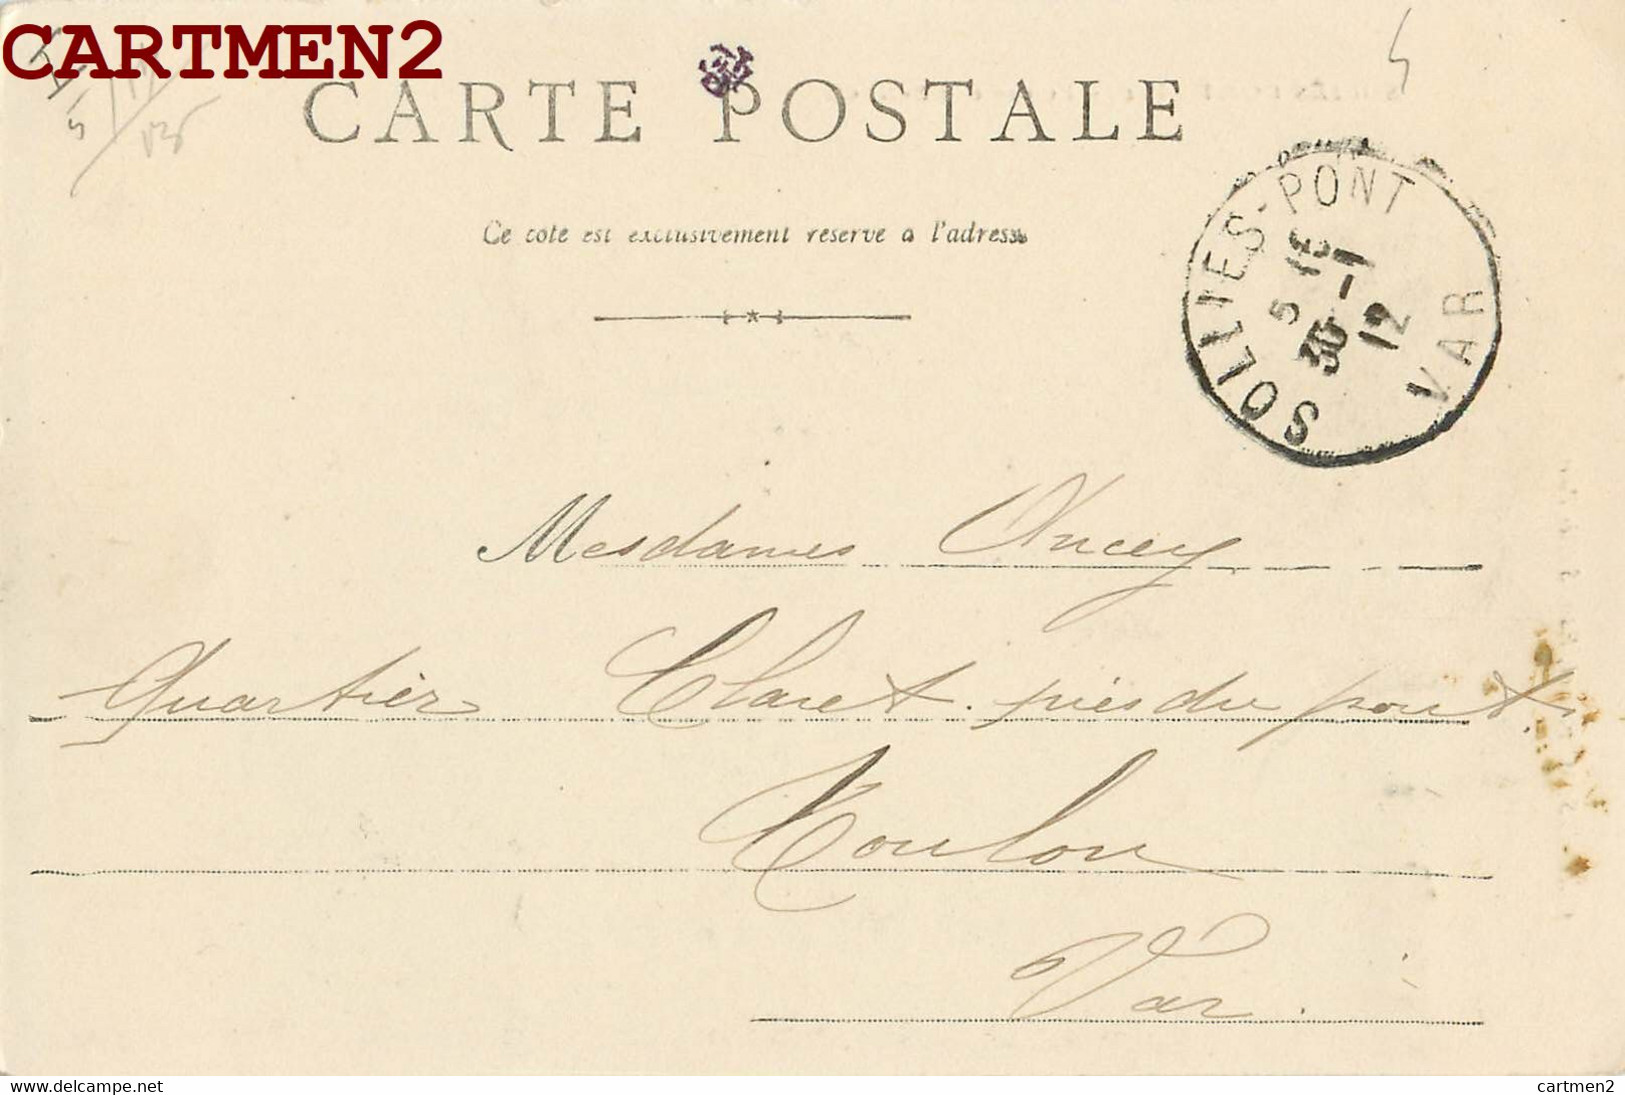 CARTMEN2
CARTE POSTALE
Ce coté est exclusivement réservé à l'adresse
SOLLIES-PONT
5 15
30 -1
12
VAR
Mesdames Ancey
Quartier Claret près du pont
Toulon
Var.
www.delcampe.net
cartmen2